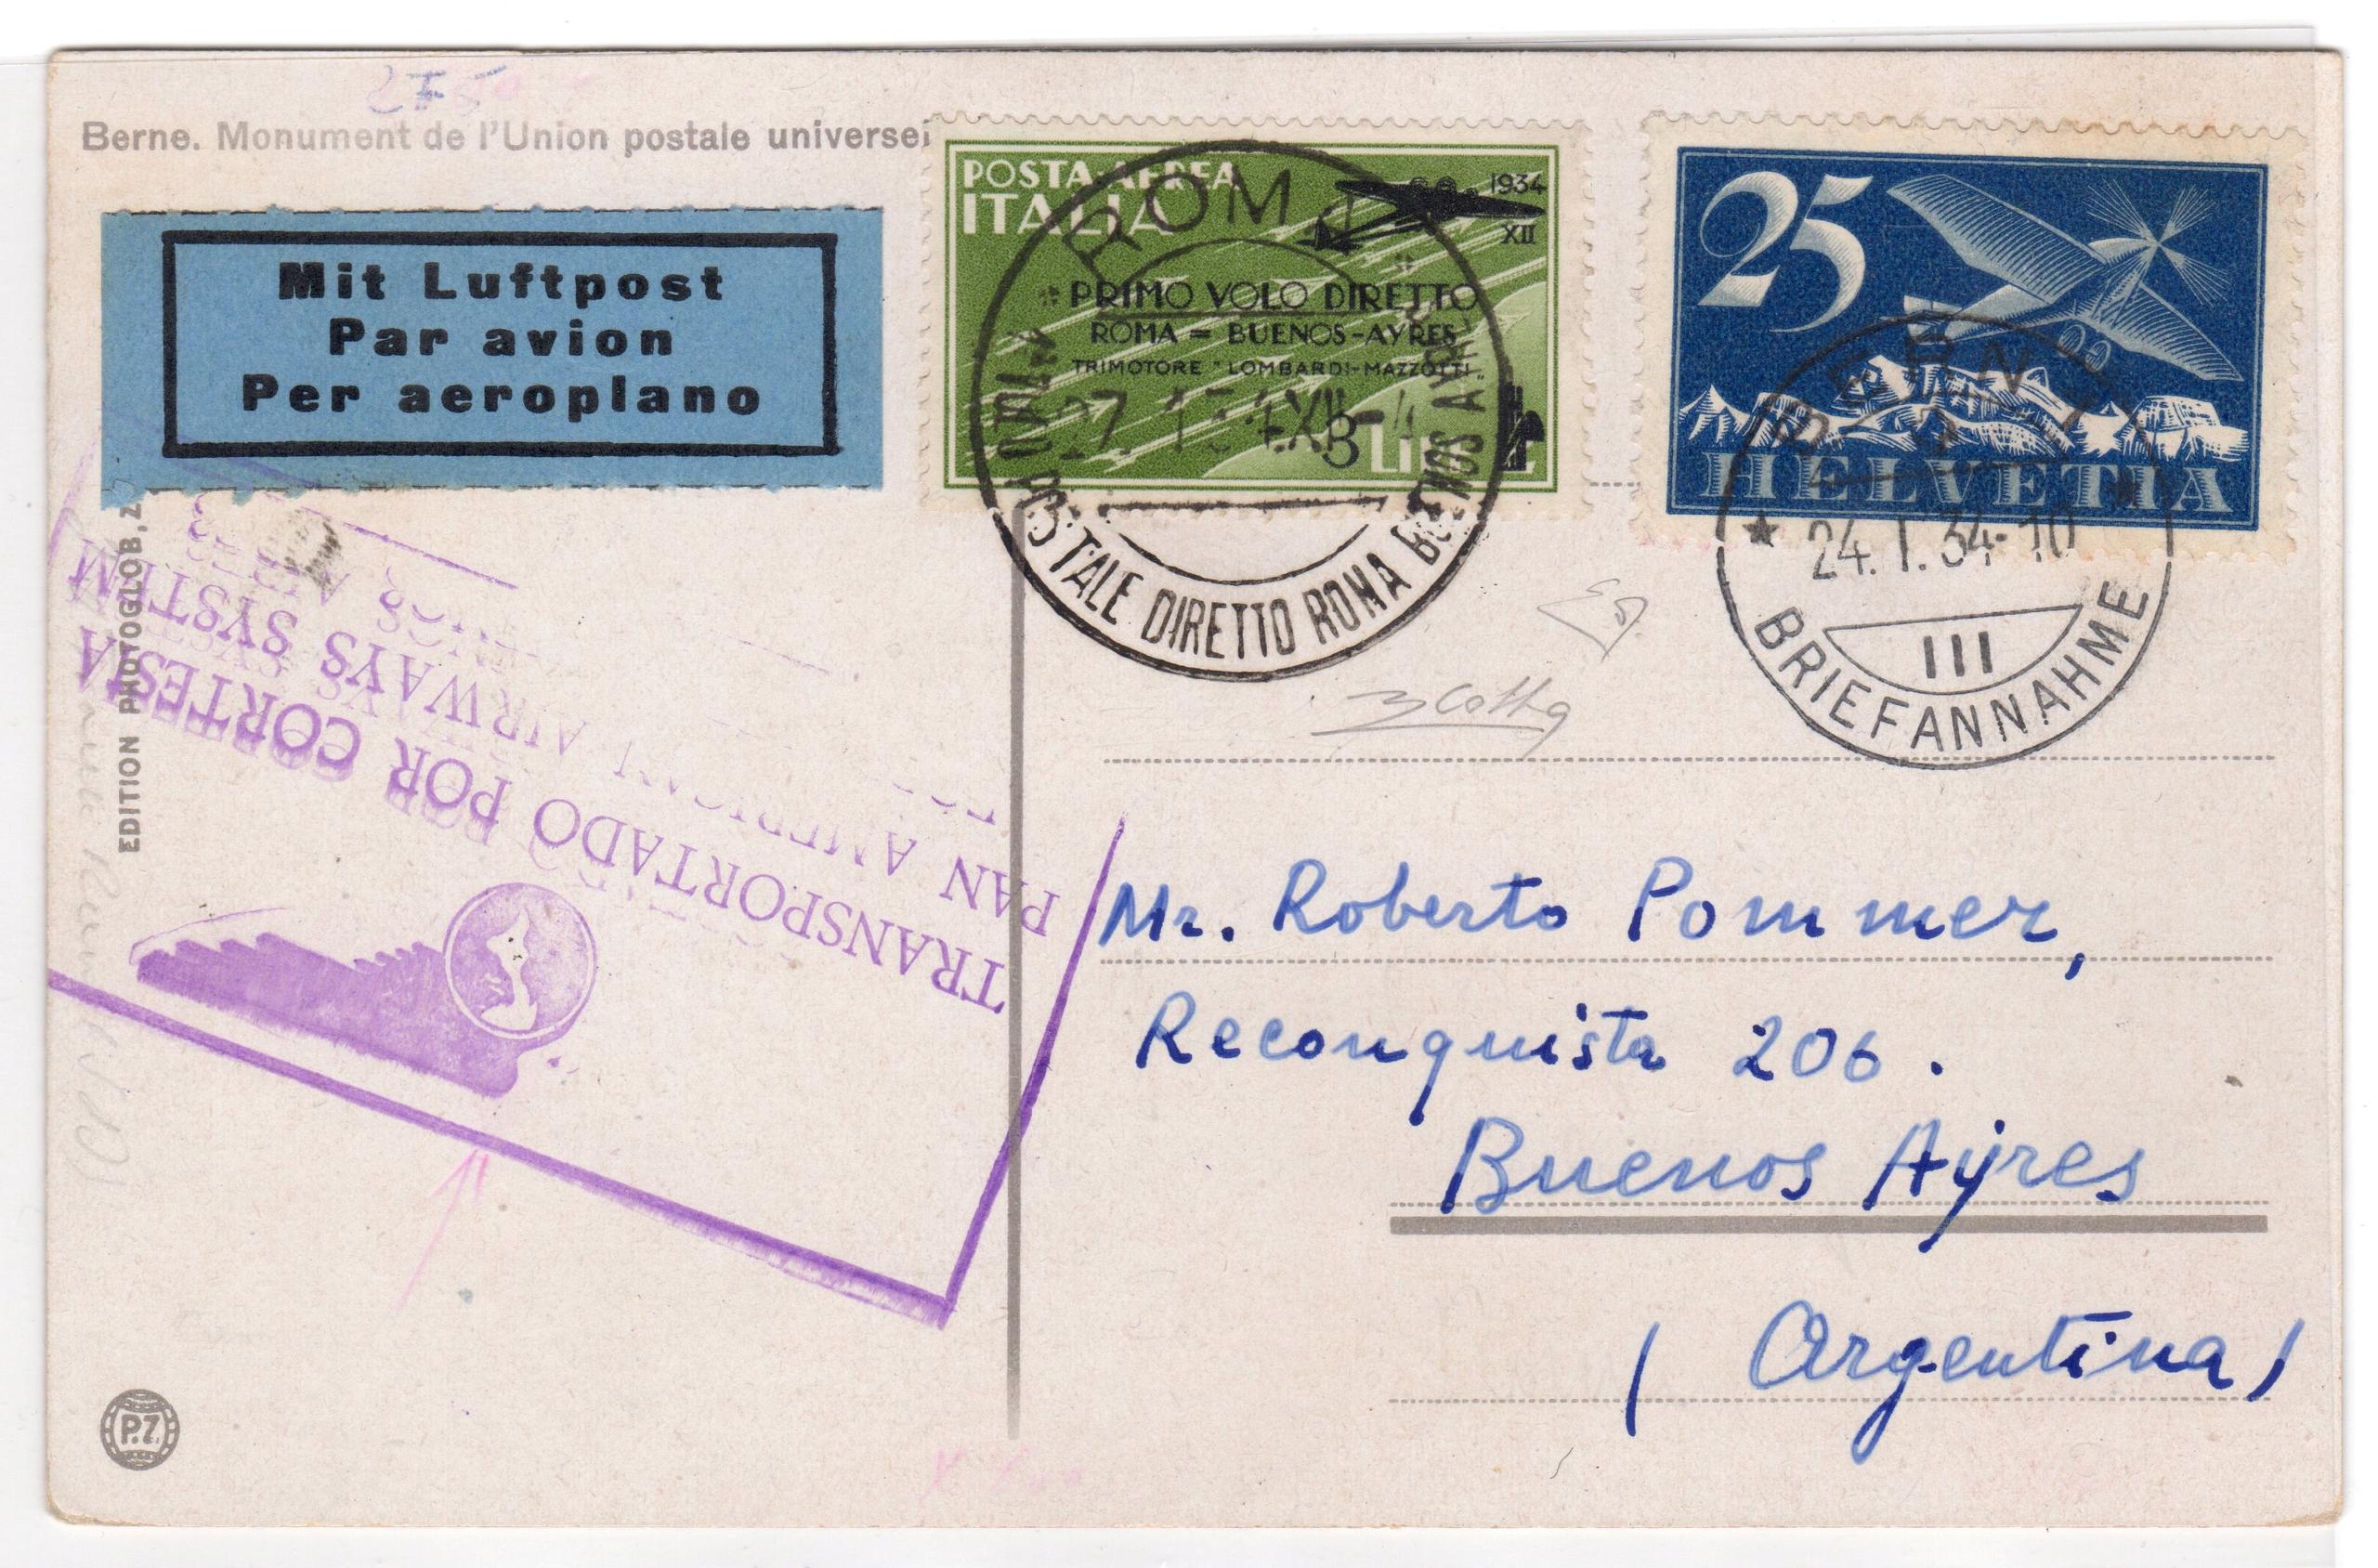 Berne. Monument de l'Union postale universel
Mit Luftpost
Par avion
Per aeroplano
POSTA-AEREA
ITALIA
1934
XII
PRIMO VOLO DIRETTO
ROMA = BUENOS-AYRES
TRIMOTORE "LOMBARDI-MAZZOTTI"
ROMA
POSTALE DIRETTO ROMA BUENOS AYRES
25
HELVETIA
BERN
24.I.34-10
III
BRIEFANNAHME
EDITION PHOTOGLOB, Z
TRANSPORTADO POR CORTESIA
PAN AMERICAN AIRWAYS SYSTEM
Mr. Roberto Pommer,
Reconquista 206.
Buenos Ayres
(Argentina)
P.Z.